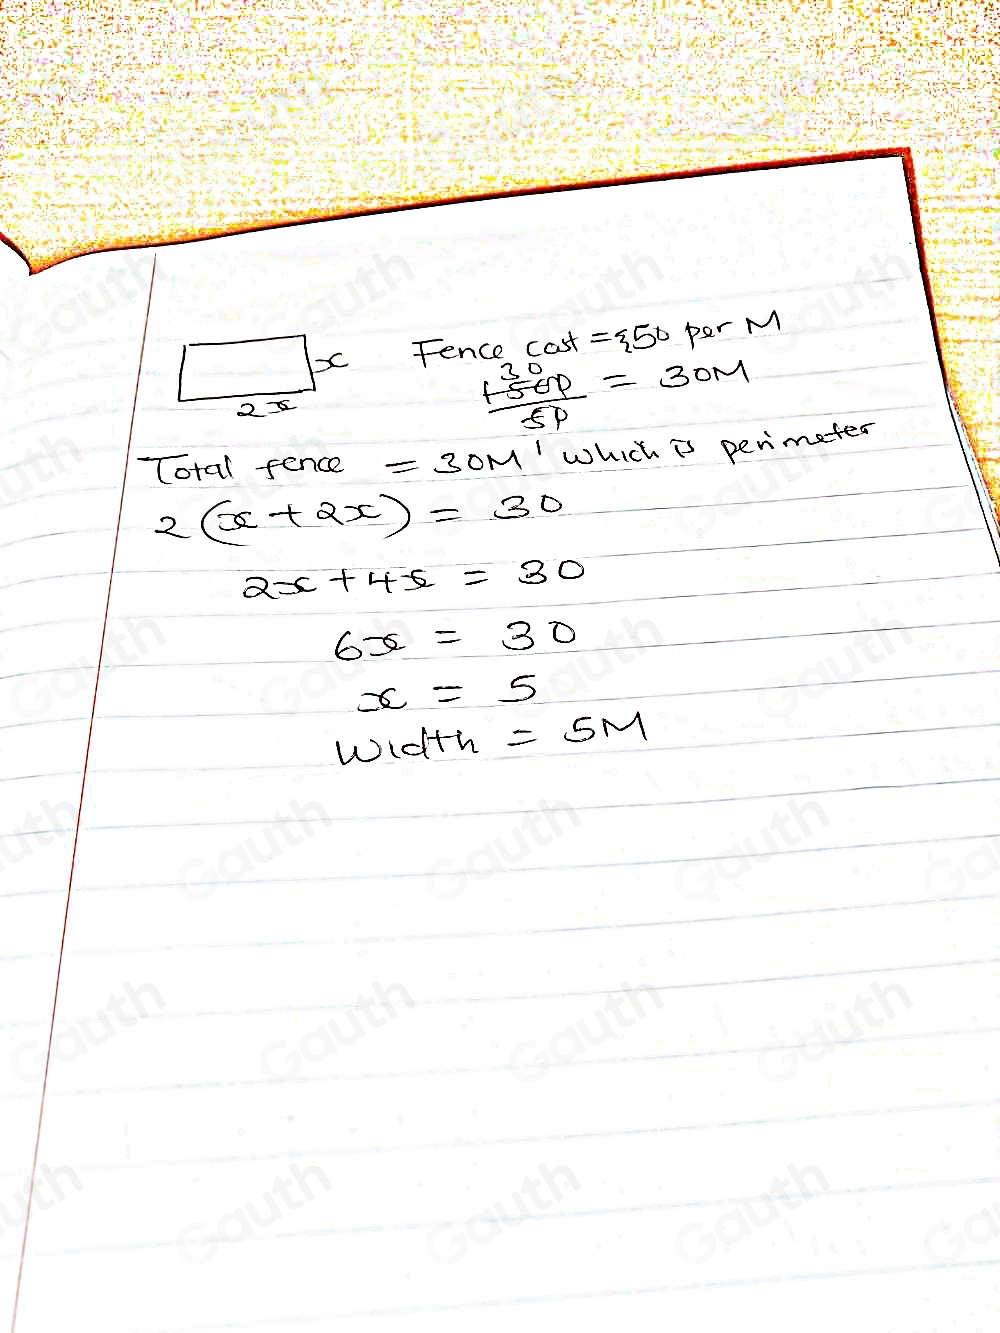 x
2x
Fence cost = £50 per M
30
1500 = 30M
50
Total fence = 30M' which is perimeter
2(x+2x) = 30
2x+4x = 30
6x = 30
x = 5
Width = 5M